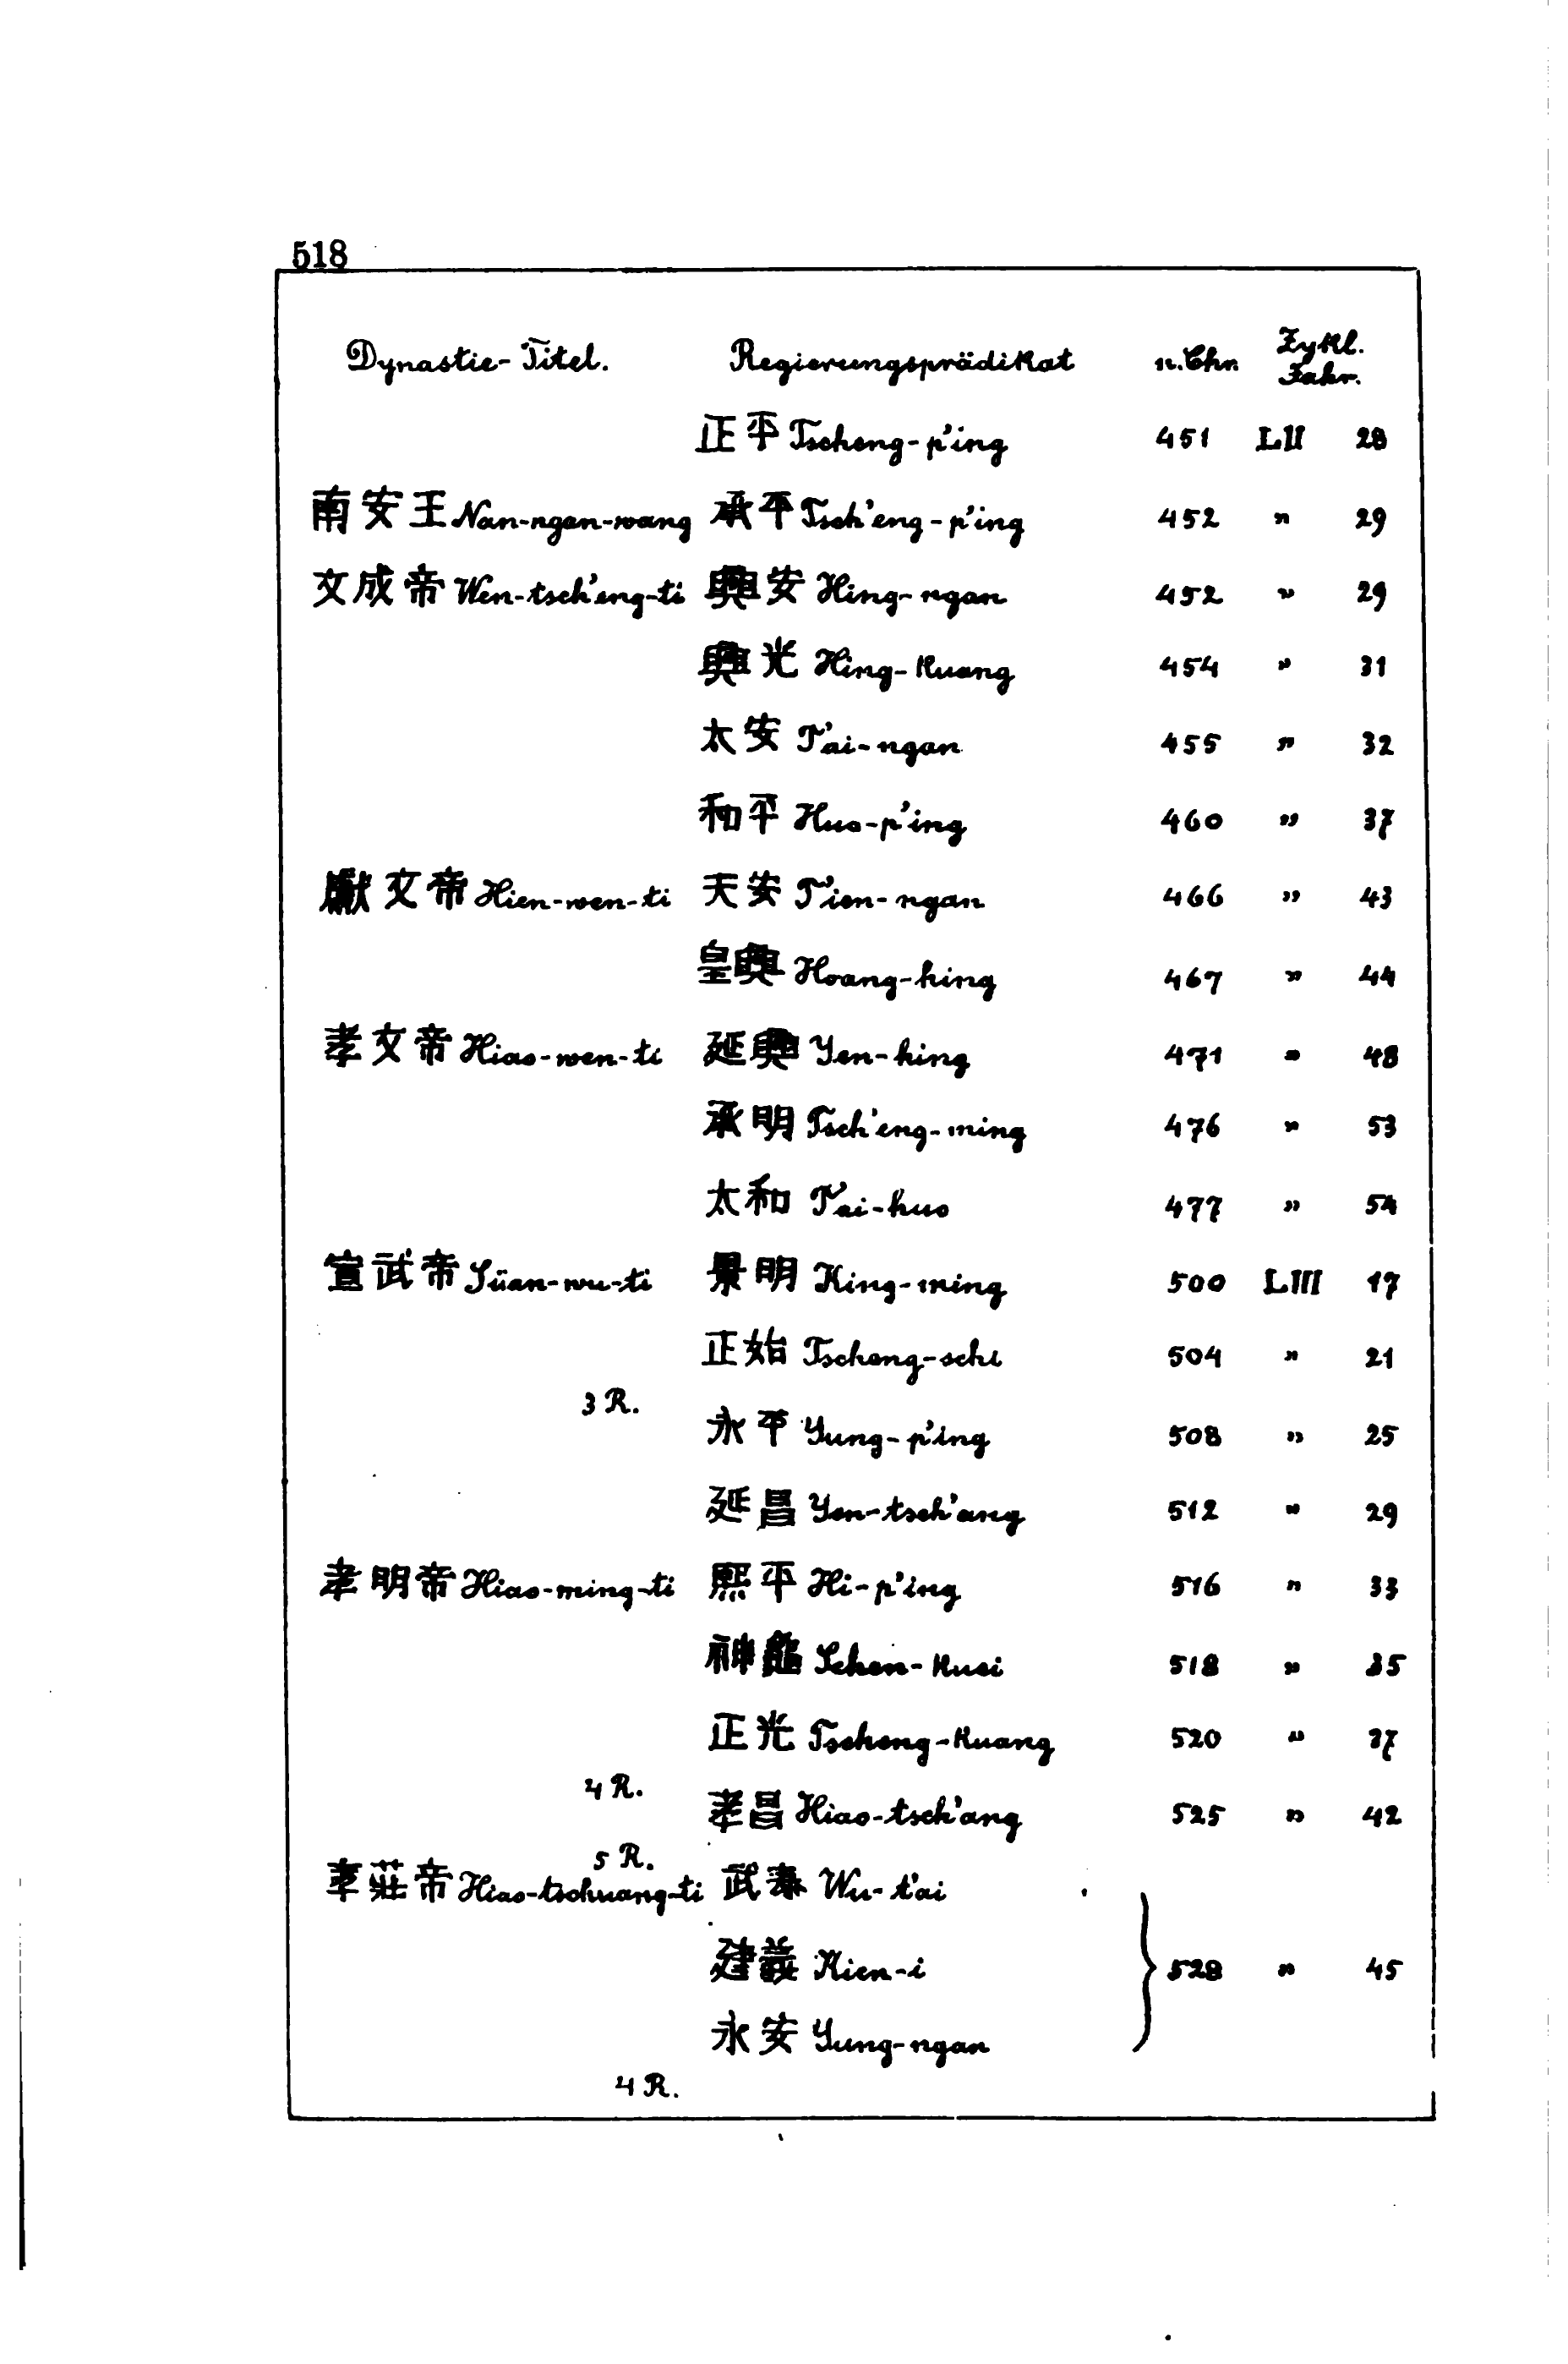 518
Dynastie-Titel. Regierungsprädikat n.Chr. Zykl. Jahr.
正平 Tscheng-p'ing 451 LII 28
南安王 Nan-ngan-wang 承平 Tsch'eng-p'ing 452 " 29
文成帝 Wen-tsch'eng-ti 興安 Hing-ngan 452 " 29
興光 Hing-kuang 454 " 31
太安 T'ai-ngan 455 " 32
和平 Huo-p'ing 460 " 37
獻文帝 Hien-wen-ti 天安 T'ien-ngan 466 " 43
皇興 Hoang-hing 467 " 44
孝文帝 Hiao-wen-ti 延興 Yen-hing 471 " 48
承明 Tsch'eng-ming 476 " 53
太和 T'ai-huo 477 " 54
宣武帝 Süan-wu-ti 景明 King-ming 500 LIII 17
正始 Tscheng-schi 504 " 21
3 R.
永平 Yung-p'ing 508 " 25
延昌 Yen-tsch'ang 512 " 29
孝明帝 Hiao-ming-ti 熙平 Hi-p'ing 516 " 33
神龜 Schen-kuei 518 " 35
正光 Tscheng-kuang 520 " 37
4 R.
孝昌 Hiao-tsch'ang 525 " 42
5 R.
孝莊帝 Hiao-tschuang-ti 武泰 Wu-t'ai
建義 Kien-i 528 " 45
永安 Yung-ngan
4 R.